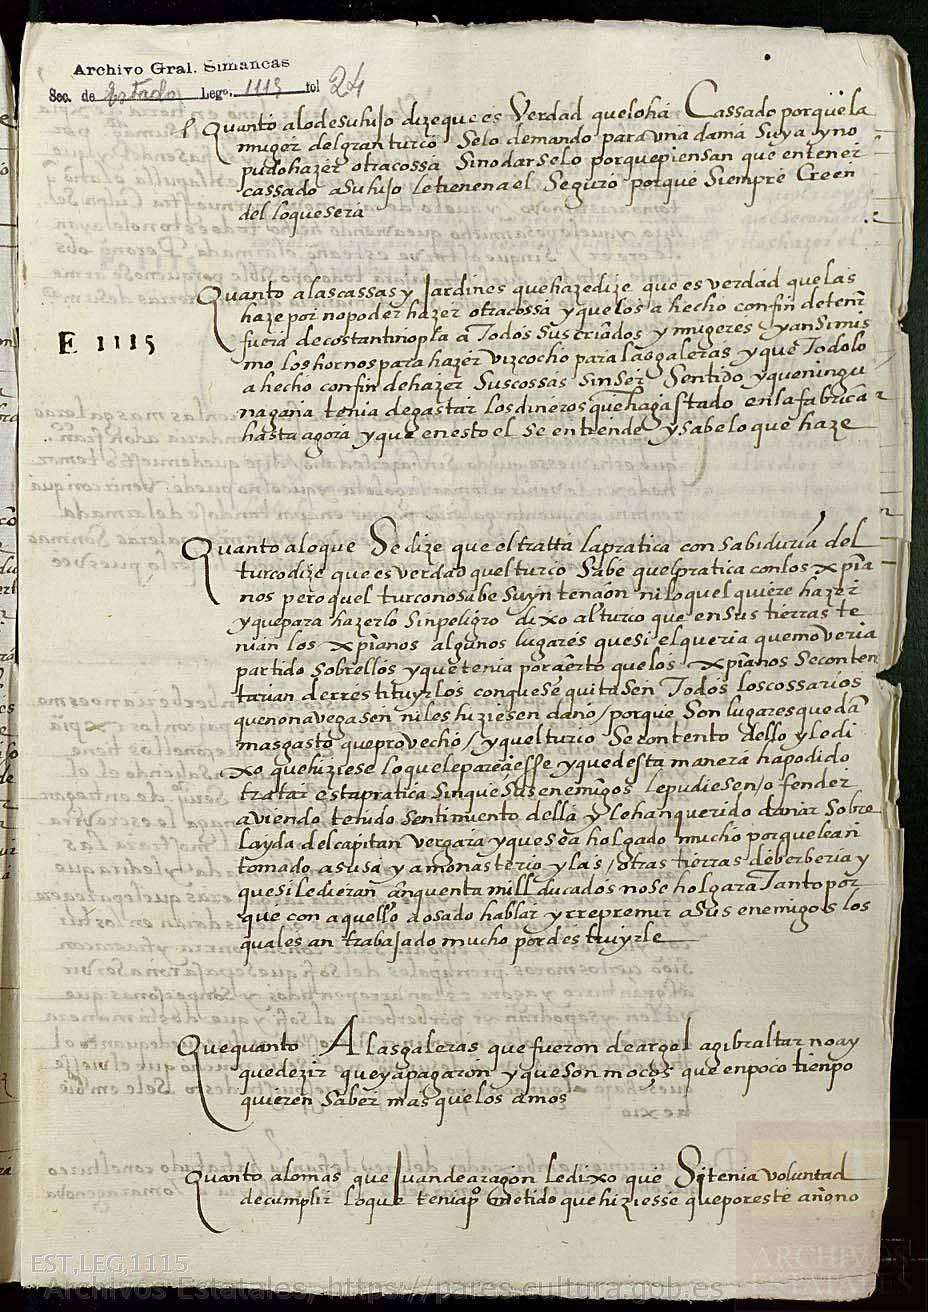 Archivo Gral. Simancas
Sec. de Estado Lego. 1115 fol 24
Quanto alodesuhijo dizeque es Verdad quelo ha Cassado porque la
muger delgranturco selo demando para una dama Suya yno
pudo hazer otra cossa Sinodarselo porque piensan que entener
cassado a Su hijo le tienen a el Seguro porque Siempre Creen
del lo que sera
Quanto alas cassas y Jardines que haze dize que es verdad quelas
haze por nopoder hazer otra cossa y quelos a hecho confin detener
fuera de costantinopla a Todos sus criados y mugeres yansimis
mo los hornos para hazer vizcocho para lasgaleras y que Todolo
a hecho confin de hazer Sus cossas sin ser Sentido yqueningu
na gana tenia degastar los dineros que ha gastado en la fabrica
hasta agora yque en esto el se entiende y sabe lo que haze
E 1115
Quanto aloque Se dize que el tratta la pratica con sabiduria del
turco dize que es verdad quel turco Sabe quel pratica con los xpia
nos pero quel turco no sabe Su yntencion ni lo quel quiere hazer
y que para hazerlo sin peligro dixo al turco que en sus tierras te
nian los xpianos algunos lugares que si el queria que moveria
partido sobrellos y que tenia por cierto que los xpianos se conten
tarian de rrestituyrlos con que se quitasen Todos los cossarios
que no navegasen ni les hiziesen daño / porque Son lugares que dā
mas gasto que provecho / y quel turco Se contento dello y le di
xo que hiziese lo que le pareciesse y que desta manera ha podido
tratar esta pratica sin que sus enemigos le pudiesen / ofender
aviendo tenido sentimiento della y le han querido dañar Sobre
la yda del capitan vergara y que se a holgado mucho porque le an
tomado a susa y a monasterio y las / otras tierras de berberia y
que si le dieran cinquenta mill ducados no se holgara Tanto por
que con aquello a osado hablar y rrepremir a Sus enemigos los
quales an trabajado mucho por destruyrle
Que quanto A las galeras que fueron de argel a gibraltar no ay
que dezir que ya pagaron y que son moços que en poco tienpo
quieren saber mas que los amos
Quanto alomas que Juan de aragon le dixo que Si tenia voluntad
de cumplir lo que tenia prometido que hiziesse que por este año no
EST,LEG,1115
Archivos Estatales, https://pares.cultura.gob.es